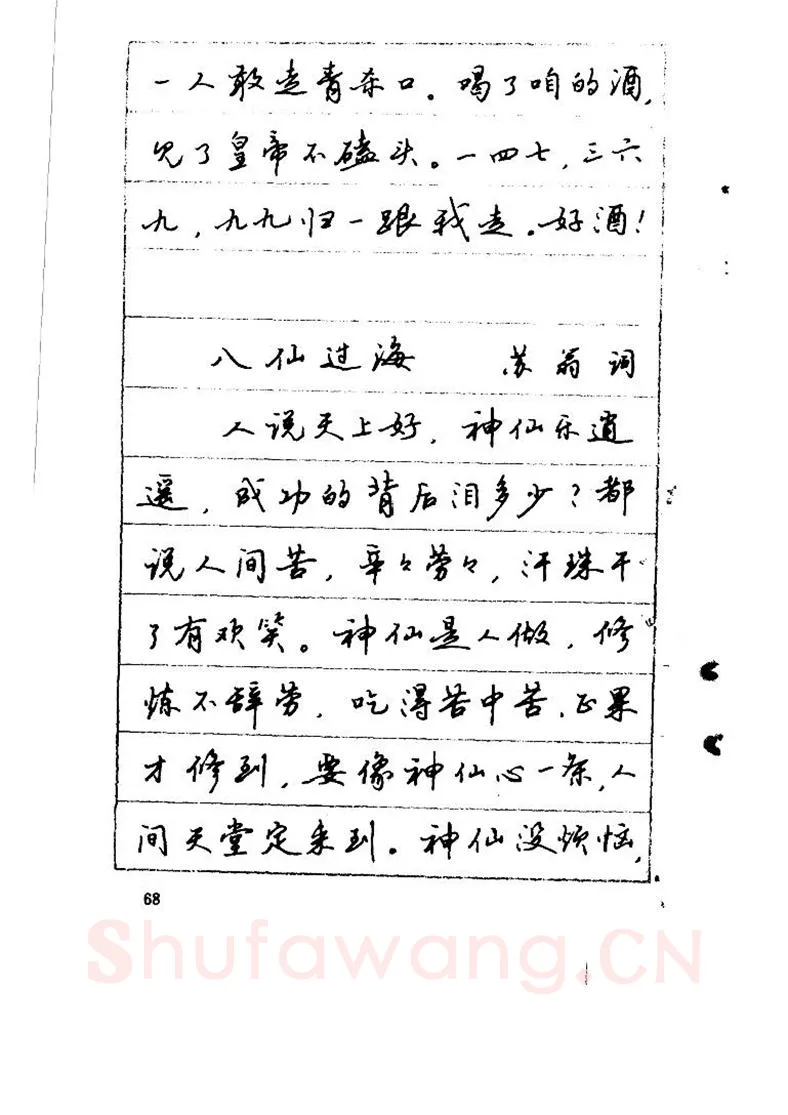 一人敢走青杀口。喝了咱的酒,
见了皇帝不磕头。一四七,三六
九,九九归一跟我走。好酒!
八仙过海 苏翁词
人说天上好,神仙乐逍
遥,成功的背后泪多少?都
说人间苦,辛々劳々,汗珠干
了有欢笑。神仙是人做,修
炼不辞劳,吃得苦中苦,正果
才修到,要像神仙心一条,人
间天堂定来到。神仙没烦恼,
68
Shufawang.CN